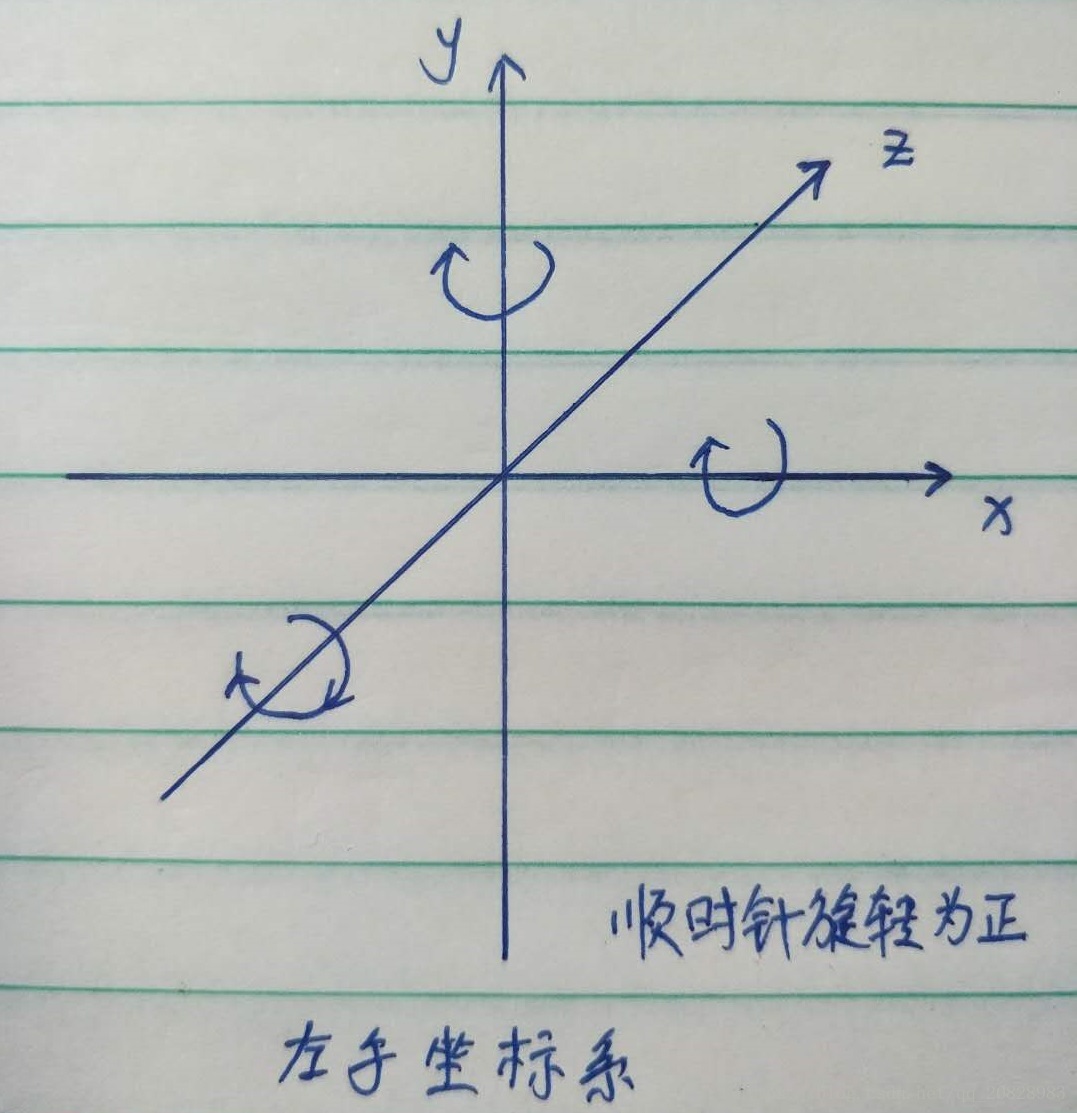 y
z
x
顺时针旋转为正
左手坐标系